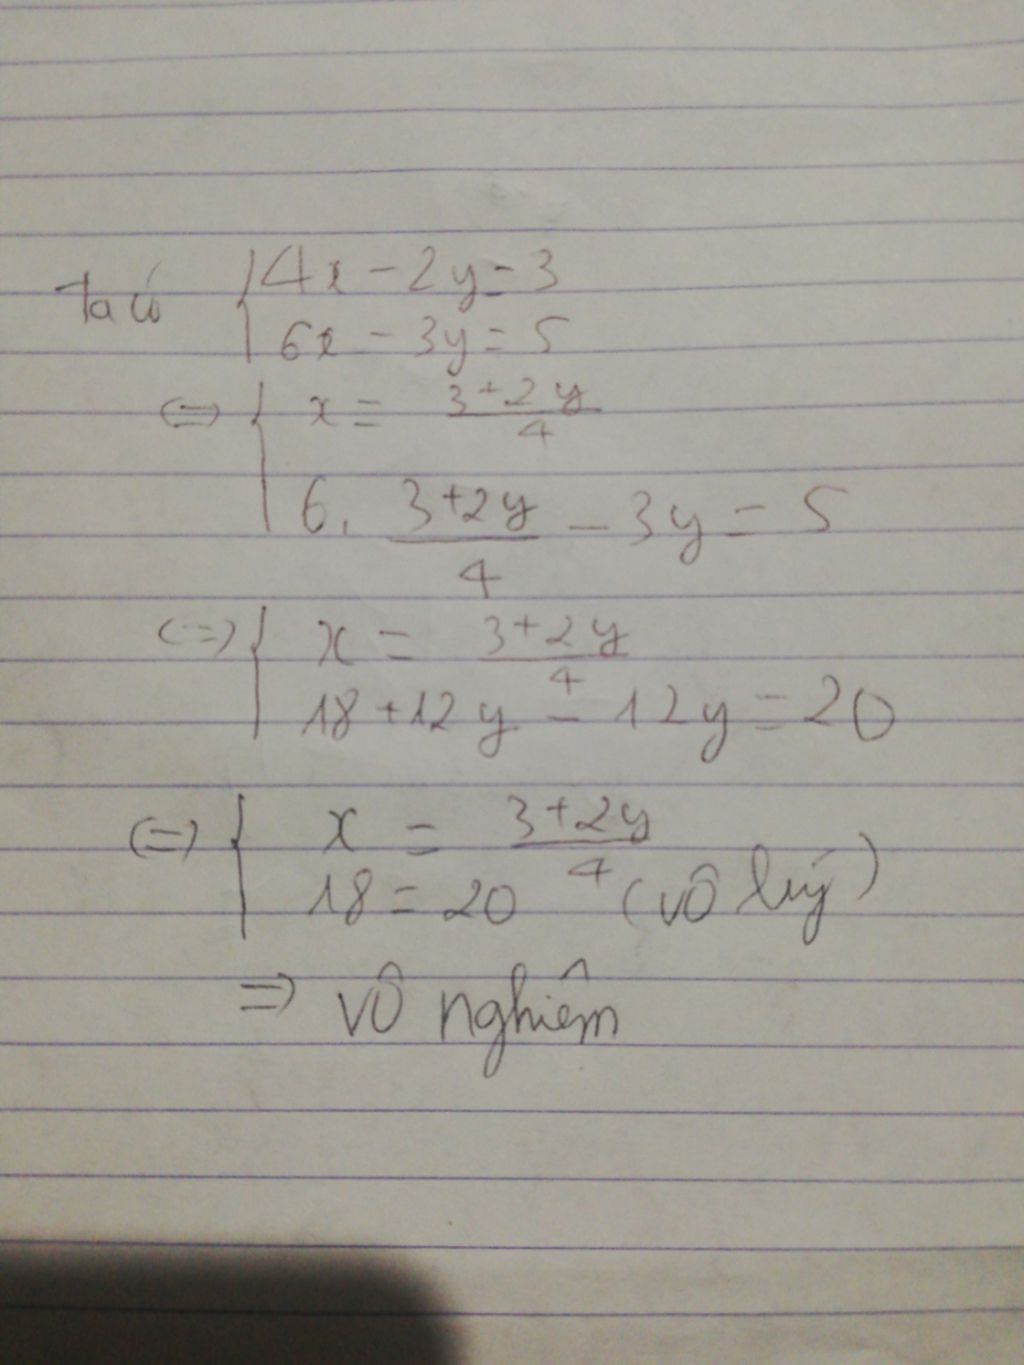 Ta có { 4x - 2y = 3
6x - 3y = 5
<=> { x = (3+2y)/4
6. (3+2y)/4 - 3y = 5
<=> { x = (3+2y)/4
18 + 12y - 12y = 20
<=> { x = (3+2y)/4
18 = 20 (vô lý)
=> vô nghiêm